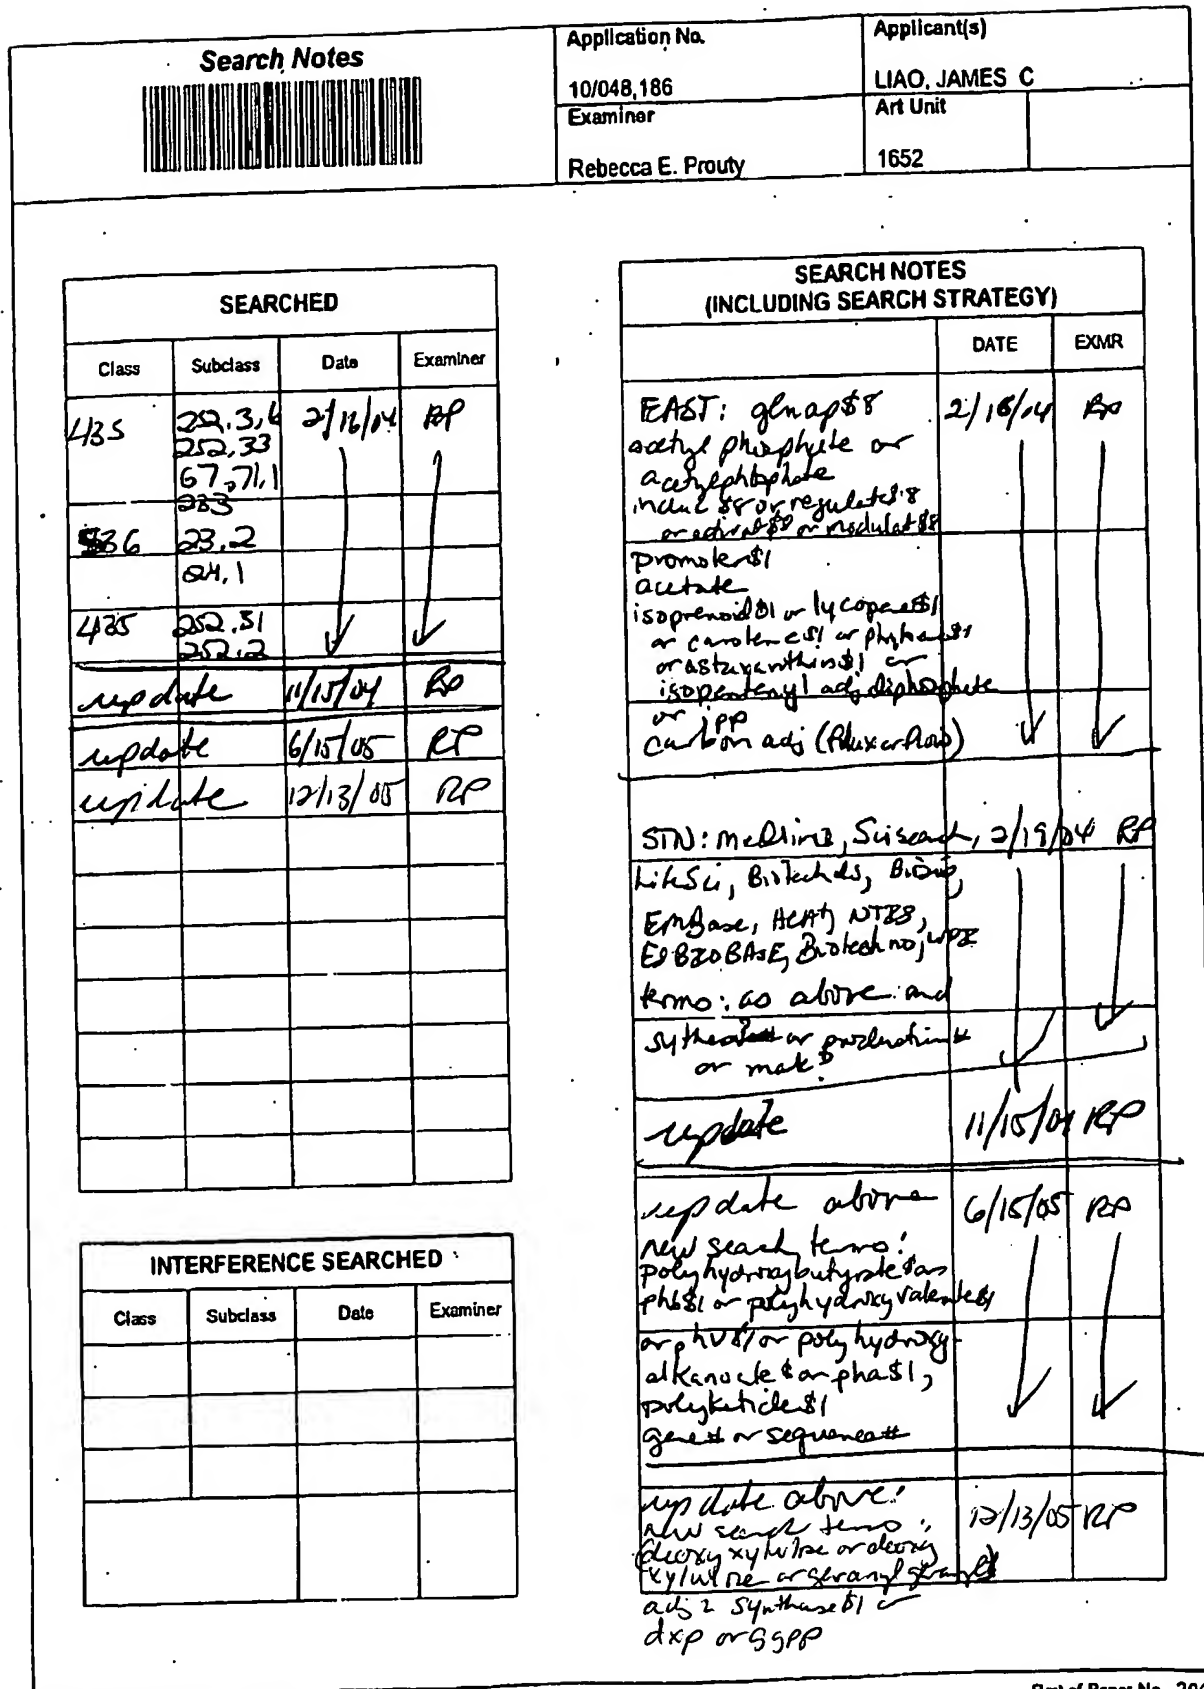 Search Notes
Application No.
10/048,186
Examiner
Rebecca E. Prouty
Applicant(s)
LIAO, JAMES C
Art Unit
1652
SEARCHED
Class Subclass Date Examiner
435 252.3, 6 2/18/04 RP
252.33
67, 71.1
233
536 23.2
24.1
435 252.31
252.2
update 11/15/04 RP
update 6/15/05 RP
update 12/13/05 RP
INTERFERENCE SEARCHED
Class Subclass Date Examiner
SEARCH NOTES
(INCLUDING SEARCH STRATEGY)
DATE EXMR
EAST: glnap$8 2/18/04 RP
acetyl phosphate or
acetylphosphate
induc$8 or regulat$8
or activat$8 or modulat$8
promoter$1
acetate
isoprenoid$1 or lycopene$1
or carotene$1 or phytoene$1
or astaxanthin$1 or
isopentenyl adj diphosphate
or ipp
carbon adj (flux or flow)
STN: Medline, Scisearch, 2/19/04 RP
LifeSci, Biotechds, Biosis,
EmBase, HCAP, NTIS,
ESBIOBASE, Biotechno, WPI
terms: as above and
or production#
or mak?
update 11/15/04 RP
update above 6/15/05 RP
new search terms:
polyhydroxybutyrate$ or
phb$1 or polyhydroxyvalerate$1
or phv$1 or polyhydroxy-
alkanoate$ or pha$1,
polyketide$1
gene# or sequence#
update above: 12/13/05 RP
new search terms:
(deoxyxylulose or deoxy
xylulose or geranylgeranyl)
adj2 synthase$1 or
dxp or ggpp